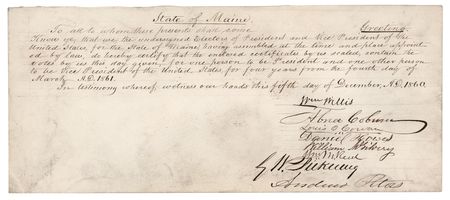 State of Maine.
To all to whom these presents shall come Greeting:
Know ye, that we the undersigned Electors of President and Vice President of the
United States for the State of Maine, having assembled at the time and place appoint-
ed by law, do hereby certify that the enclosed certificates by us sealed, contain the
votes by us this day given, for one person to be President and one other person
to be Vice President of the United States, for four years from the fourth day of
March, A.D. 1861.
In testimony whereof, witness our hands this fifth day of December, A.D. 1860.
Wm Willis
Abner Coburn
Louis O. Cowan
Daniel Howes
William McGilvery
Wm. P. Reed
G. W. Pickering
Andrew Peters